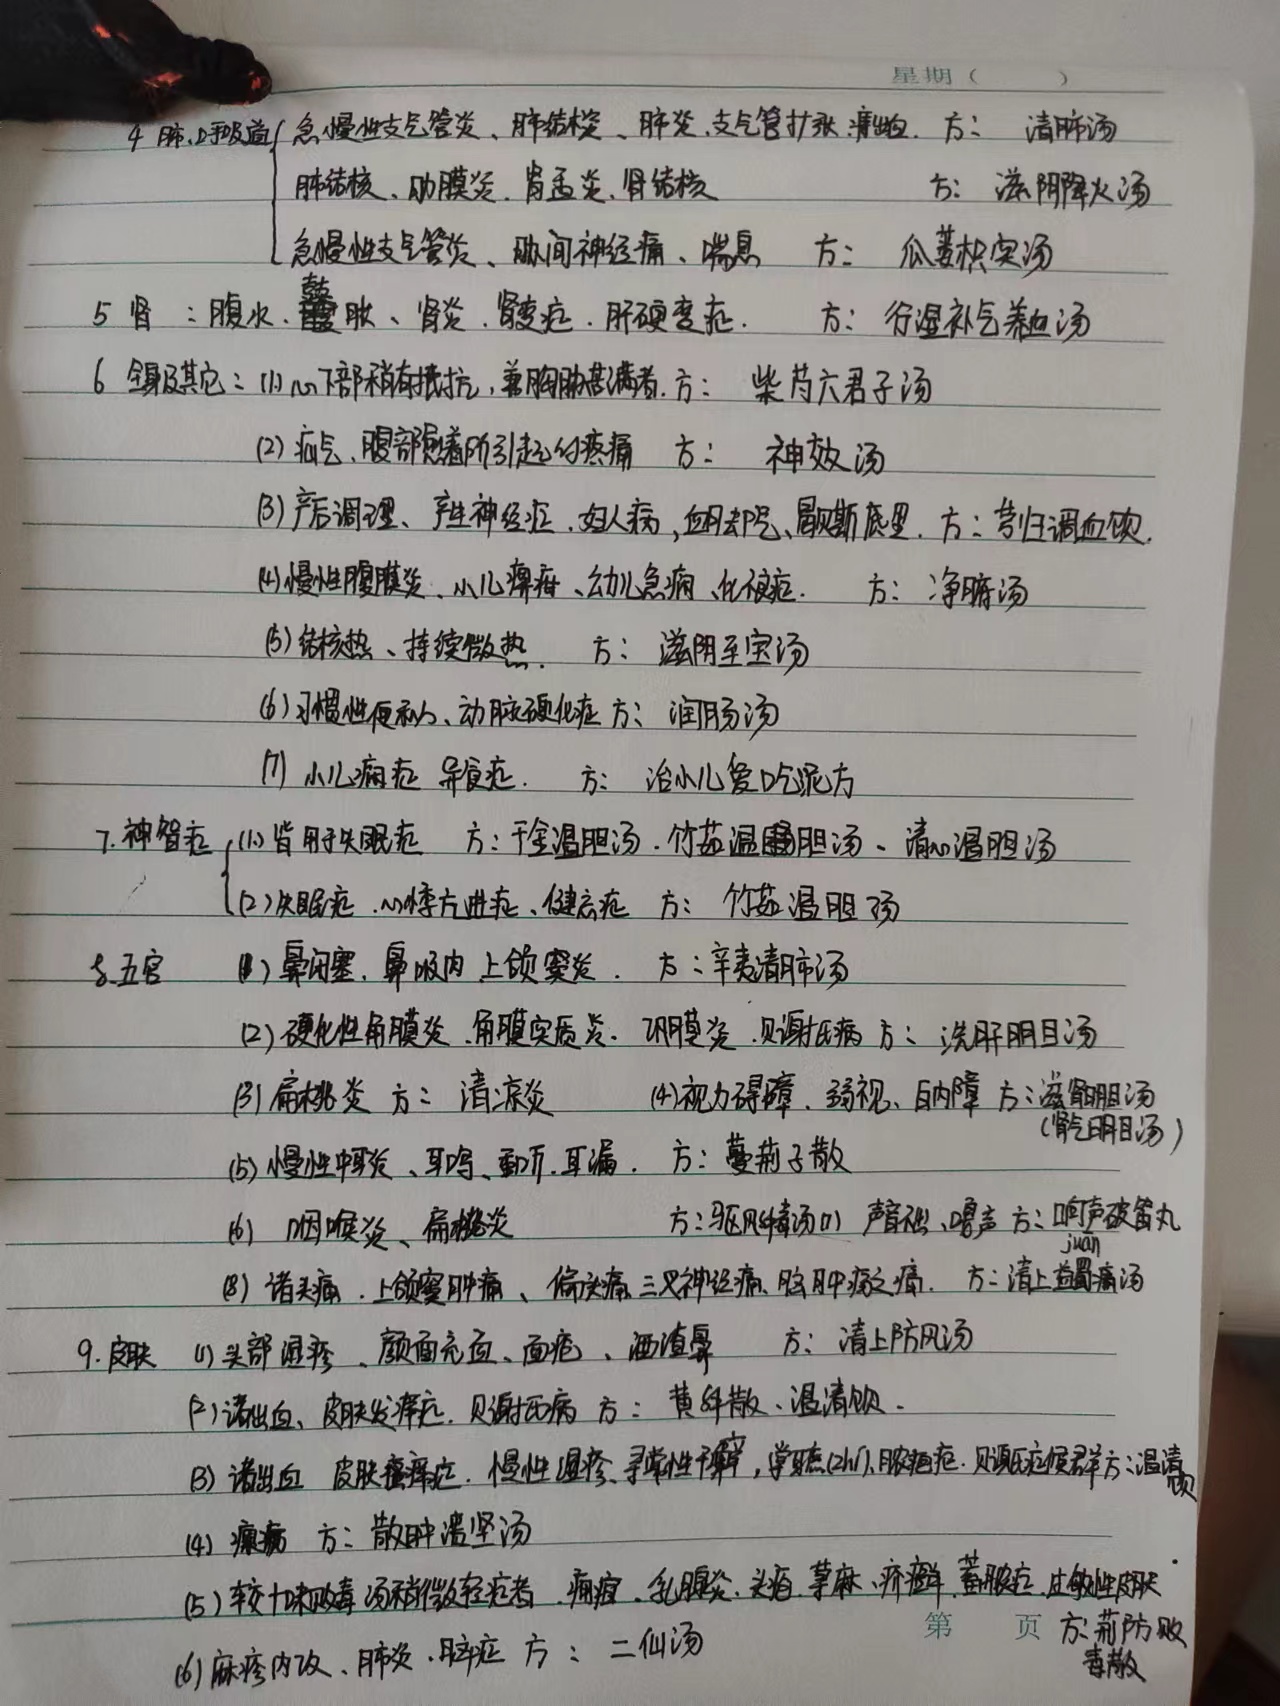 星期（ ）
4 肺、呼吸道 急慢性支气管炎、肺结核、肺炎、支气管扩张、 方： 清肺汤
肺结核、肋膜炎、肾盂炎、肾结核 方： 滋阴降火汤
急慢性支气管炎、肋间神经痛、喘息 方： 瓜蒌枳实汤
5 肾：腹水、鼓胀、肾炎、肾变症、肝硬变症. 方： 行湿补气养血汤
6 全身及其它：(1)心下部稍有抵抗，兼胸胁苦满者. 方： 柴芍六君子汤
(2)疝气、腹部 所引起的疼痛 方： 神效汤
(3)产后调理、产生神经症、妇人病，血 、 斯底里. 方：芎归调血饮.
(4)慢性腹膜炎、小儿脾疳、幼儿急痫、 方： 净腑汤
(5)结核热、持续微热. 方： 滋阴至宝汤
(6)习惯性便秘、动脉硬化症 方： 润肠汤
(7)小儿 症 异食症. 方： 治小儿爱吃泥方
7.神智症 (1)皆用于失眠症 方：千金温胆汤、竹茹温胆汤、清心温胆汤
(2)失眠症、心悸亢进症、健忘症 方： 竹茹温胆汤
8.五官 (1)鼻闭塞、鼻 内 上颌窦炎. 方：辛夷清肺汤
(2)硬化性角膜炎、角膜实质炎、巩膜炎、贝谢氏病 方： 洗肝明目汤
(3)扁桃炎 方： 清凉炎 (4)视力碍障、弱视、白内障 方：滋肾明胆汤
（肾气明目汤）
(5)慢性中耳炎、耳鸣、重听、耳漏. 方： 蔓荆子散
(6) 咽喉炎、扁桃炎 方：驱风解毒汤 (7) 声音 、嘎声 方：响声破笛丸
juān
(8)诸头痛、上颌窦肿痛、偏头痛、三叉神经痛、脑肿疡之痛. 方：清上蠲痛汤
9.皮肤 (1)头部湿疹、颜面充血、面疱、酒渣鼻 方： 清上防风汤
(2)诸出血、皮肤发痒症、贝谢氏病 方： 黄解散、温清饮.
(3)诸出血 皮肤瘙痒症、慢性湿疹、寻常性干癣，荨麻疹、脓疱症. 贝 氏症候群 方：温清饮
(4)瘰疬 方： 散肿溃坚汤
(5)较十味败毒汤稍微轻症者 痈疽、乳腺炎、头疮、荨麻、疥癣、蓄脓症、过敏性皮肤
第 页 方：荆防败毒散
(6)麻疹内攻、肺炎、脑症 方： 二仙汤